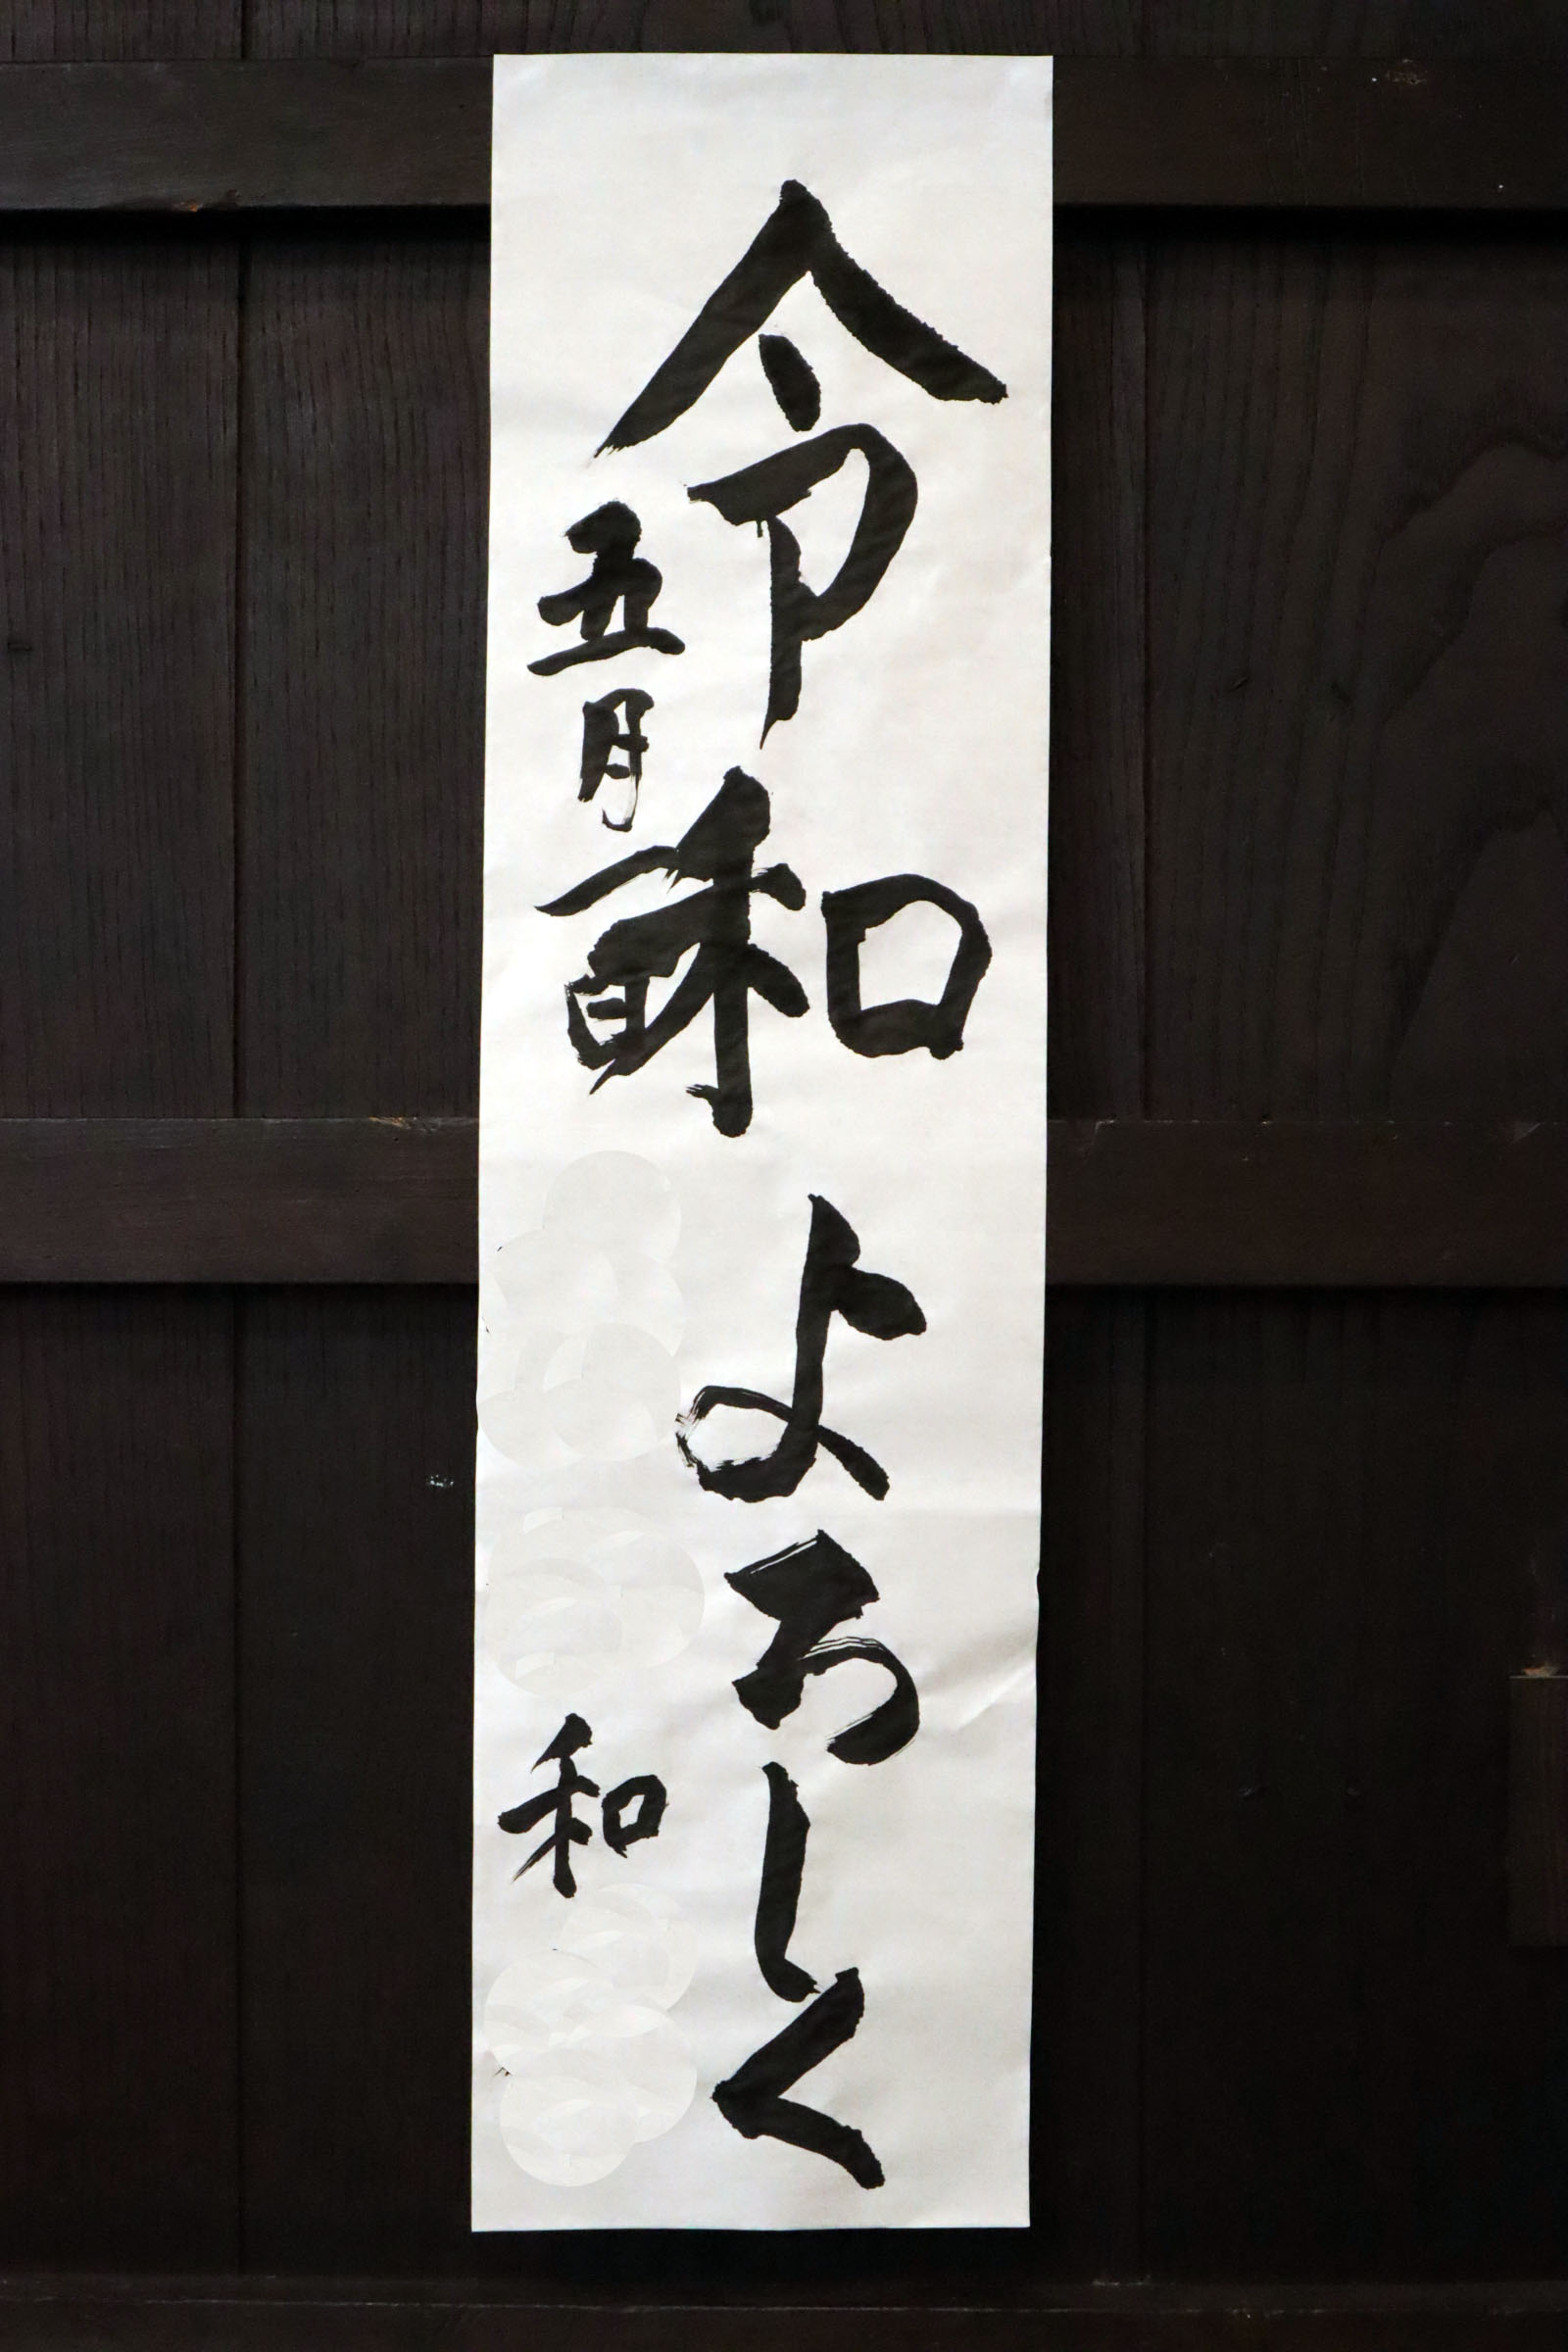 令和よろしく
五月一日
和